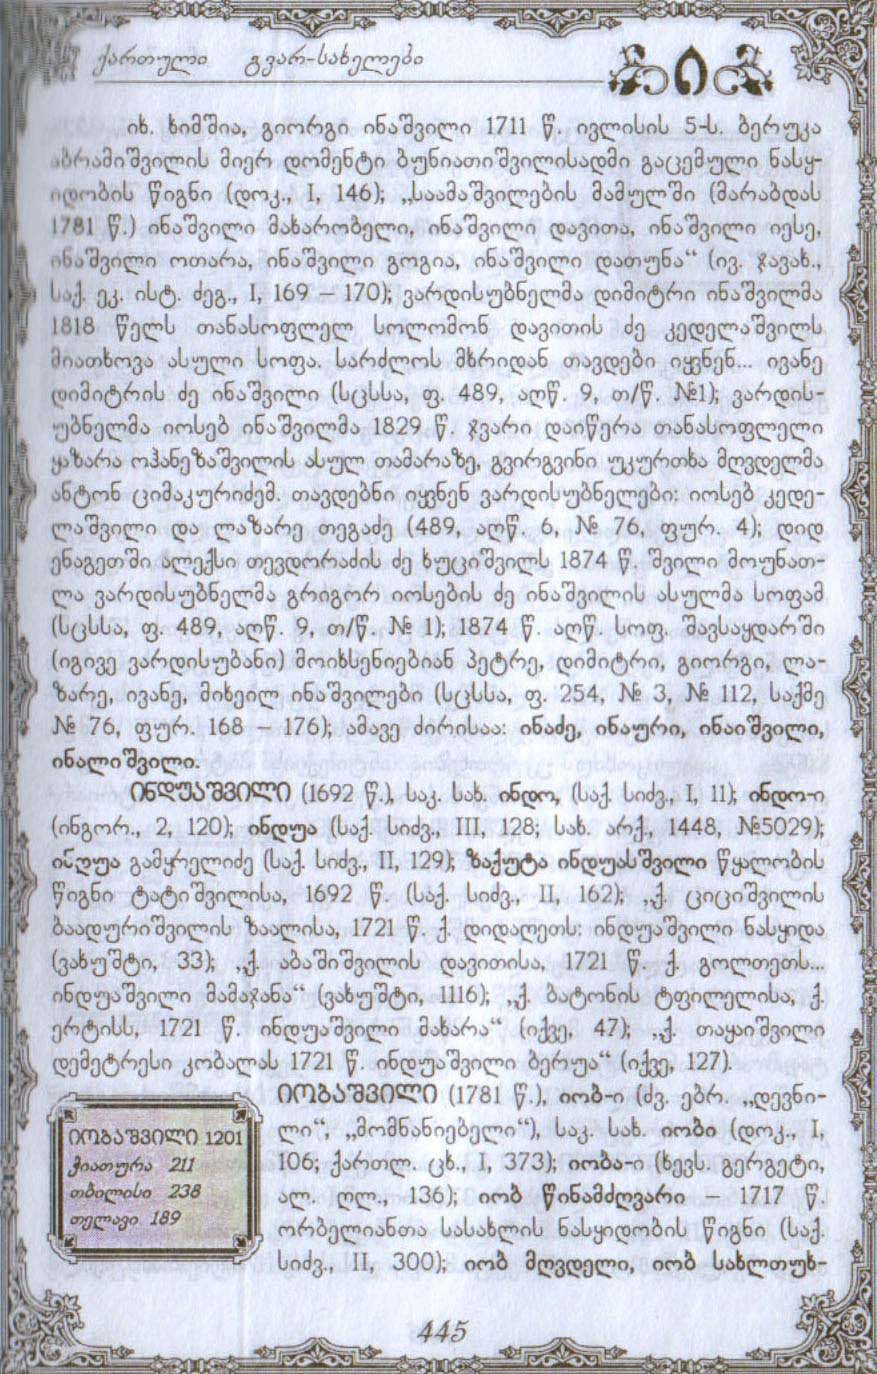 ქართული გვარ-სახელები
ი
იხ. ხიმშია, გიორგი ინაშვილი 1711 წ. ივლისის 5-ს. ბერუკა
აბრამიშვილის მიერ დომენტი ბუნიათიშვილისადმი გაცემული ნასყ-
იდობის წიგნი (დოკ., I, 146); „საამაშვილების მამულში (მარაბდას
1781 წ.) ინაშვილი მახარობელი, ინაშვილი დავითა, ინაშვილი იესე,
ინაშვილი ოთარა, ინაშვილი გოგია, ინაშვილი დათუნა“ (ივ. ჯავახ.,
საქ. ეკ. ისტ. ძეგ., I, 169 – 170); ვარდისუბნელმა დიმიტრი ინაშვილმა
1818 წელს თანასოფლელ სოლომონ დავითის ძე კედელაშვილს
მიათხოვა ასული სოფა. სარძლოს მხრიდან თავდები იყვნენ... ივანე
დიმიტრის ძე ინაშვილი (სცსსა, ფ. 489, აღწ. 9, თ/წ. №1); ვარდის-
უბნელმა იოსებ ინაშვილმა 1829 წ. ჯვარი დაიწერა თანასოფლელი
ყაზარა ოჰანეზაშვილის ასულ თამარაზე, გვირგვინი უკურთხა მღვდელმა
ანტონ ციმაკურიძემ. თავდებნი იყვნენ ვარდისუბნელები: იოსებ კედე-
ლაშვილი და ლაზარე თეგაძე (489, აღწ. 6, № 76, ფურ. 4); დიდ
ენაგეთში ალექსი თევდორაძის ძე ხუციშვილს 1874 წ. შვილი მოუნათ-
ლა ვარდისუბნელმა გრიგორ იოსების ძე ინაშვილის ასულმა სოფამ
(სცსსა, ფ. 489, აღწ. 9, თ/წ. № 1); 1874 წ. აღწ. სოფ. შავსაყდარში
(იგივე ვარდისუბანი) მოიხსენიებიან პეტრე, დიმიტრი, გიორგი, ლა-
ზარე, ივანე, მიხეილ ინაშვილები (სცსსა, ფ. 254, № 3, № 112, საქმე
№ 76, ფურ. 168 – 176); ამავე ძირისაა: ინაძე, ინაური, ინაიშვილი,
ინალიშვილი.
ინდუაშვილი (1692 წ.), საკ. სახ. ინდო, (საქ. სიძვ., I, 11); ინდო-ი
(ინგორ., 2, 120); ინდუა (საქ. სიძვ., III, 128; სახ. არქ., 1448, №5029);
ინდუა გამყრელიძე (საქ. სიძვ., II, 129); ზაქუტა ინდუასშვილი წყალობის
წიგნი ტატიშვილისა, 1692 წ. (საქ. სიძვ., II, 162); „ქ. ციციშვილის
ბაადურიშვილის ზაალისა, 1721 წ. ქ. დიდაღეთს: ინდუაშვილი ნასყიდა
(ვახუშტი, 33); „ქ. აბაშიშვილის დავითისა, 1721 წ. ქ. გოლთეთს...
ინდუაშვილი მამაჯანა“ (ვახუშტი, 1116); „ქ. ბატონის ტფილელისა, ქ.
ერტისს, 1721 წ. ინდუაშვილი მახარა“ (იქვე, 47); „ქ. თაყაიშვილი
დემეტრესი კობალას 1721 წ. ინდუაშვილი ბერუა“ (იქვე, 127).
იობაშვილი (1781 წ.), იობ-ი (ძვ. ებრ. „დევნი-
ლი“, „მომნანიებელი“), საკ. სახ. იობი (დოკ., I,
106; ქართლ. ცხ., I, 373); იობა-ი (ხევს. გერგეტი,
ალ. ღლ., 136); იობ წინამძღვარი – 1717 წ.
ორბელიანთა სასახლის ნასყიდობის წიგნი (საქ.
სიძვ., II, 300); იობ მღვდელი, იობ სახლთუხ-
იობაშვილი 1201
ჭიათურა 211
თბილისი 238
თელავი 189
445